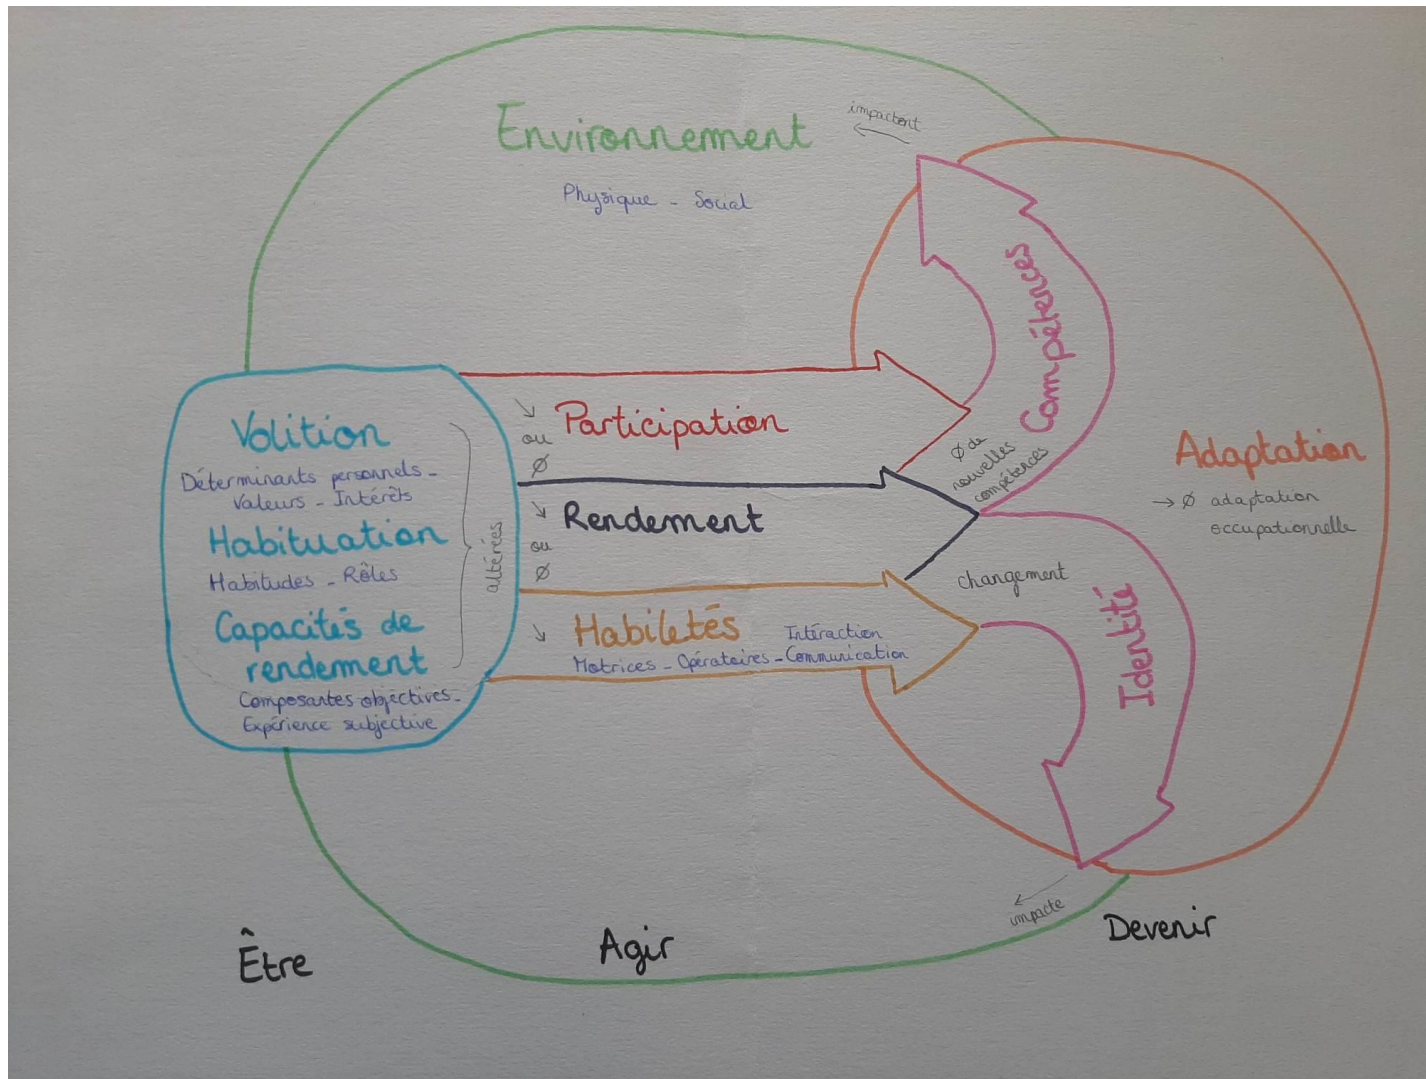 Environnement
Physique - Social
impactent
Compétences
Volition
Déterminants personnels -
Valeurs - Intérêts
Habituation
Habitudes - Rôles
Capacités de
rendement
Composantes objectives -
Expérience subjective
altérées
↘
ou
Ø
Participation
↘
ou
Ø
Rendement
↘
Habiletés
Intéraction
Motrices - Opératoires - Communication
Ø de
nouvelles
compétences
changement
Identité
Adaptation
→ Ø adaptation
occupationnelle
impacte
Être
Agir
Devenir